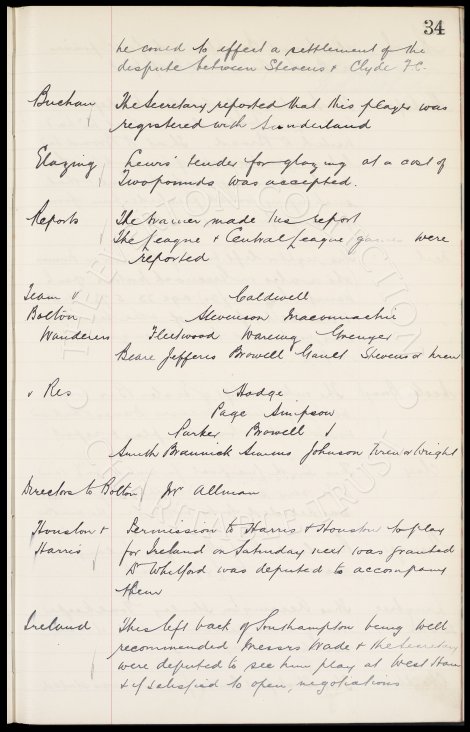 34
he could to effect a settlement of the
dispute between Stevens & Clyde F.C.
Buchan The Secretary reported that this player was
registered with Sunderland
Glazing Lewis' tender for glazing at a cost of
Two pounds was accepted.
Reports The trainer made his report
The League & Central League games were
reported
Team v Caldwell
Bolton Stevenson Maconnachie
Wanderers Fleetwood Wareing Grenyer
Beare Jefferis Browell Gault Stevens or Wren
v Res Hodge
Page Simpson
Parker Browell J
Smith Brannick Simms Johnson Wren or Wright
Directors to Bolton Mr Allman
Houston & Permission to Harris & Houston to play
Harris for Ireland on Saturday next was granted
Dr Whitford was deputed to accompany
them
Ireland This left back of Southampton being well
recommended Messrs Wade & the Secretary
were deputed to see him play at West Ham
& if satisfied to open negotiations